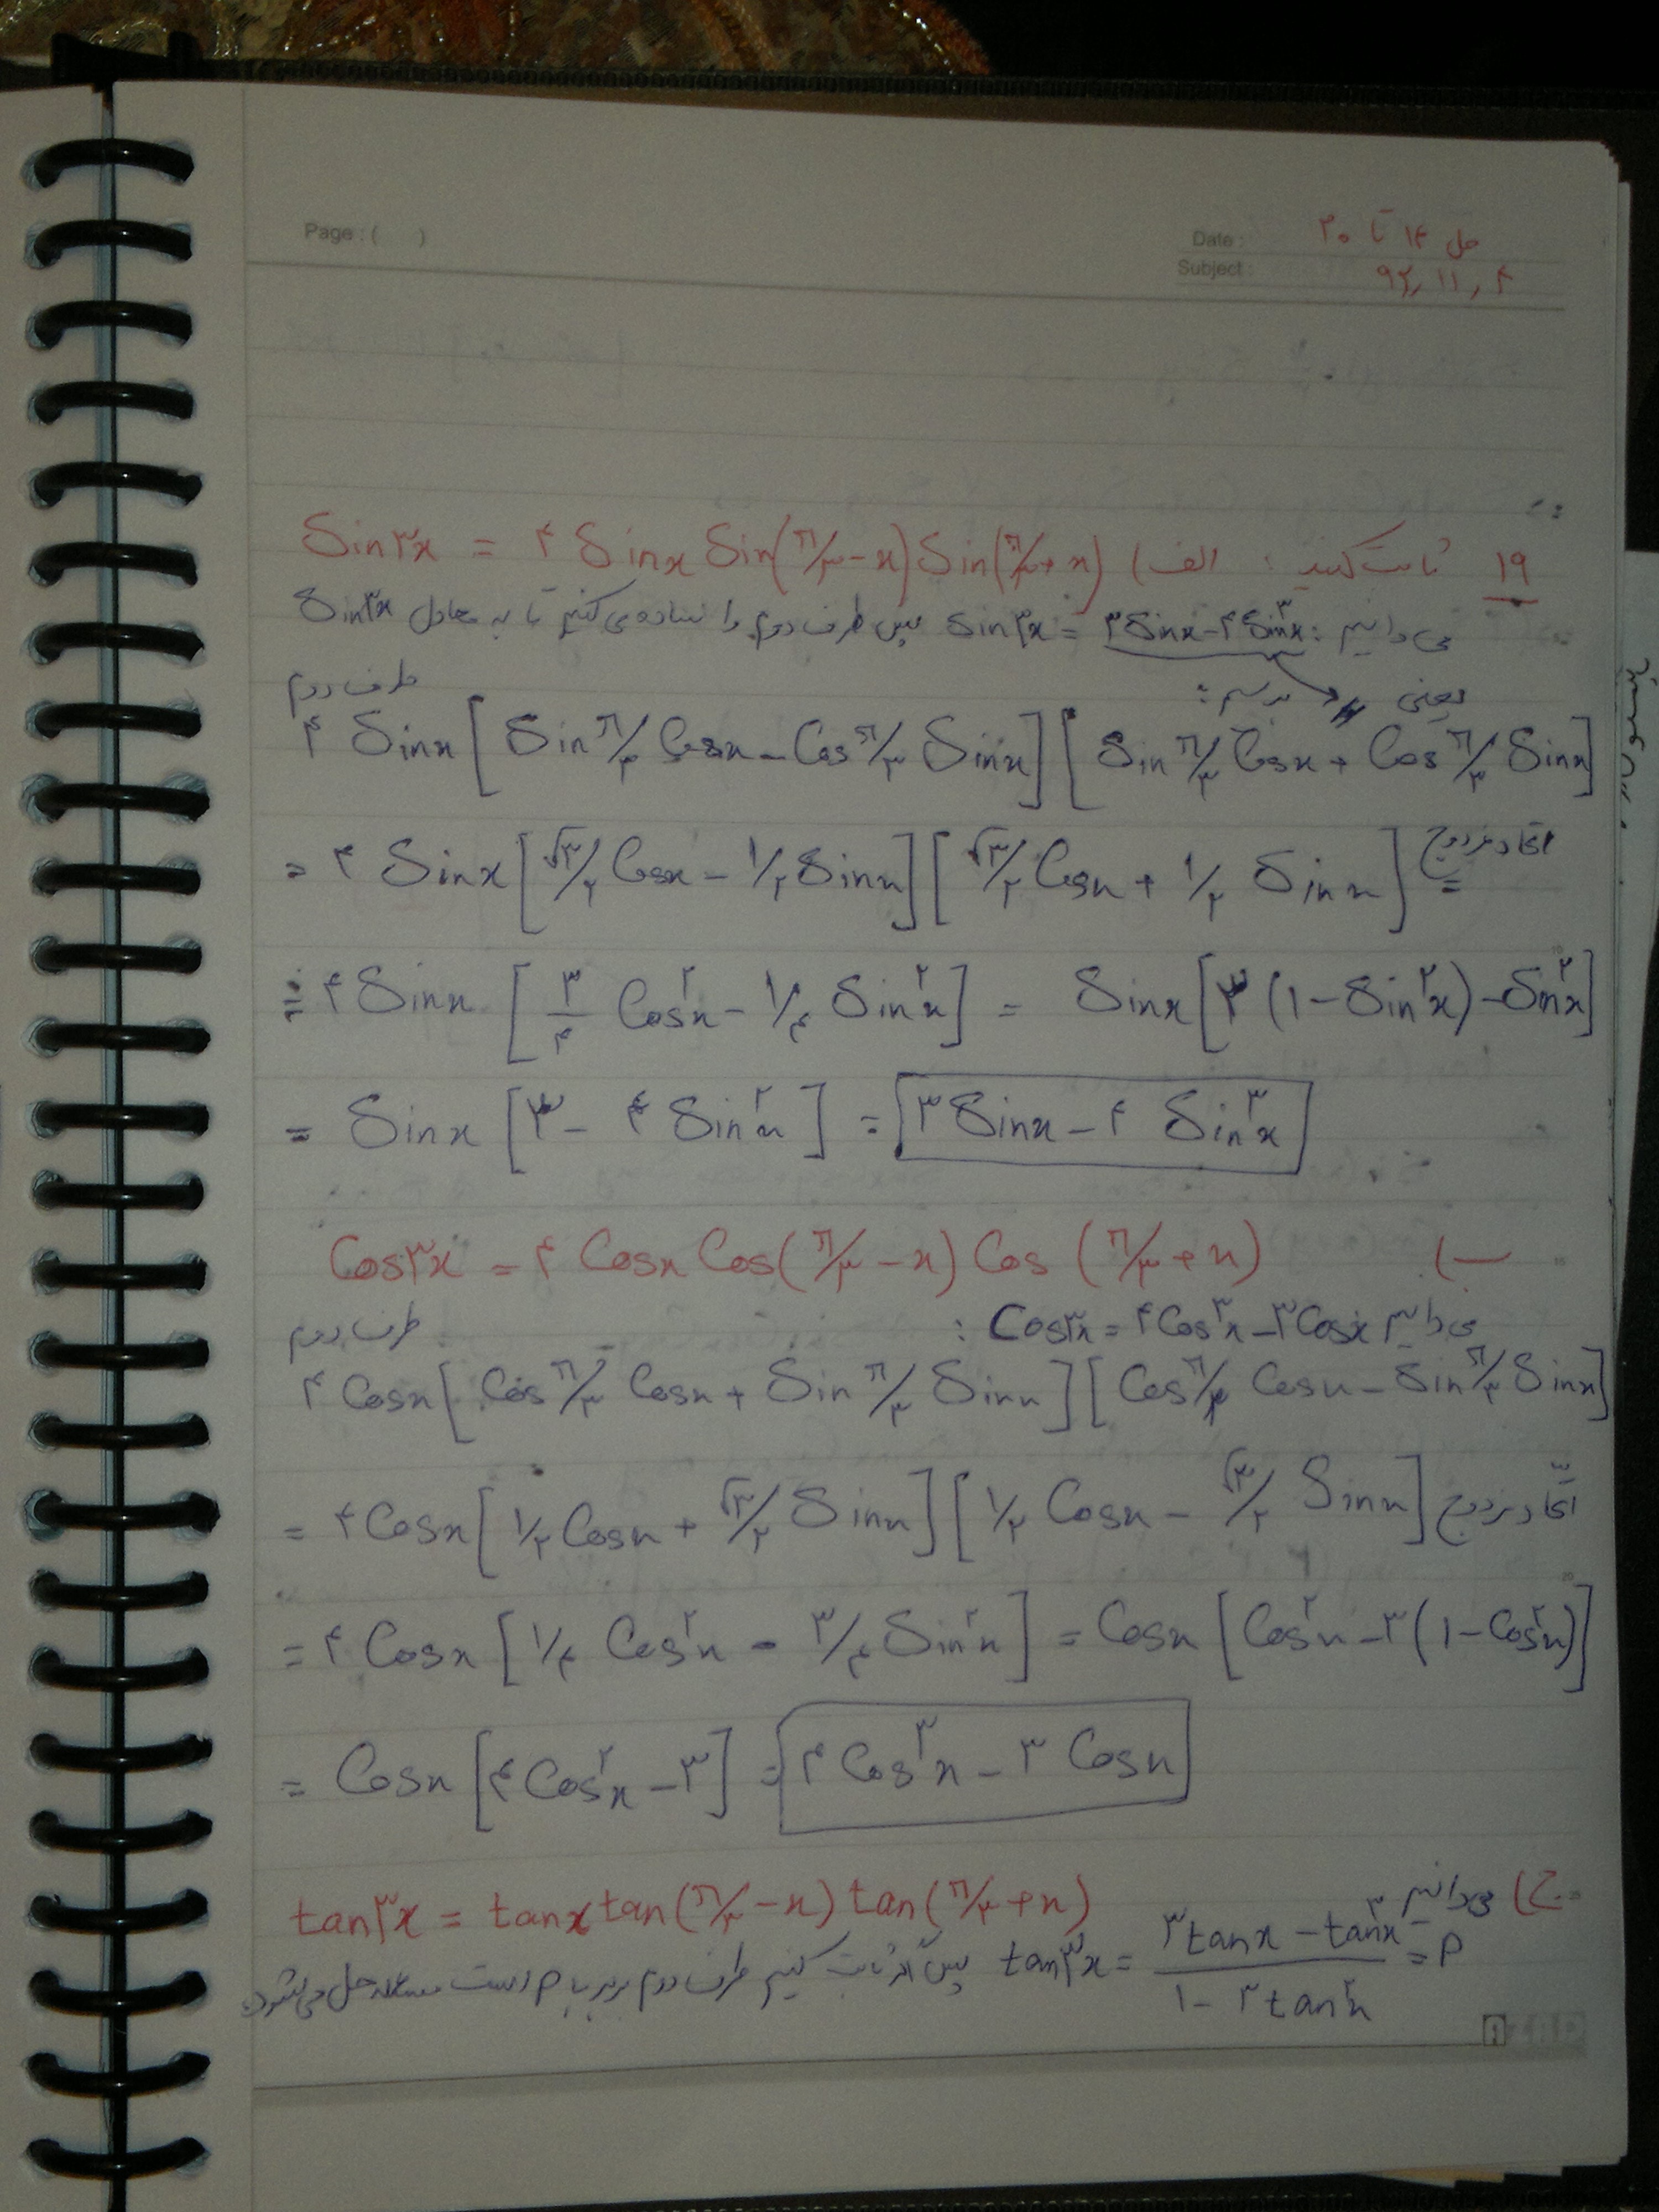 Page : ( )
Date : حل ۱۴ تا ۲۰
Subject : ۹۲, ۱۱, ۴
۱۹ ثابت کنید : الف) Sin۳x = ۴ Sinx Sin(π/۳-x) Sin(π/۳+x)
می دانیم : Sin۳x = ۳Sinx-۴Sin³x پس طرف دوم را ساده می کنیم تا به معادل Sin۳x
یعنی برسیم : طرف دوم
۴ Sinx [Sin π/۳ Cosx - Cos π/۳ Sinx] [Sin π/۳ Cosx + Cos π/۳ Sinx]
= ۴ Sinx [√۳/۲ Cosx - ۱/۲ Sinx] [√۳/۲ Cosx + ۱/۲ Sinx] اتحاد مزدوج =
= ۴ Sinx [۳/۴ Cos²x - ۱/۴ Sin²x] = Sinx [۳ (۱ - Sin²x) - Sin²x]
= Sinx [۳ - ۴ Sin²x] = ۳ Sinx - ۴ Sin³x
ب) Cos۳x = ۴ Cosx Cos(π/۳ - x) Cos (π/۳ + x)
می دانیم Cos۳x = ۴Cos³x - ۳Cosx :
طرف دوم
۴ Cosx [Cos π/۳ Cosx + Sin π/۳ Sinx] [Cos π/۳ Cosx - Sin π/۳ Sinx]
= ۴Cosx [۱/۲ Cosx + √۳/۲ Sinx] [۱/۲ Cosx - √۳/۲ Sinx] اتحاد مزدوج =
= ۴ Cosx [۱/۴ Cos²x - ۳/۴ Sin²x] = Cosx [Cos²x - ۳(۱ - Cos²x)]
= Cosx [۴Cos²x - ۳] = ۴ Cos³x - ۳ Cosx
ج) tan۳x = tanx tan(π/۳ - x) tan(π/۳ + x)
می دانیم tan۳x = (۳tanx - tan³x)/(۱ - ۳tan²x) = P پس اگر ثابت کنیم طرف دوم برابر با P است مسئله حل می شود.